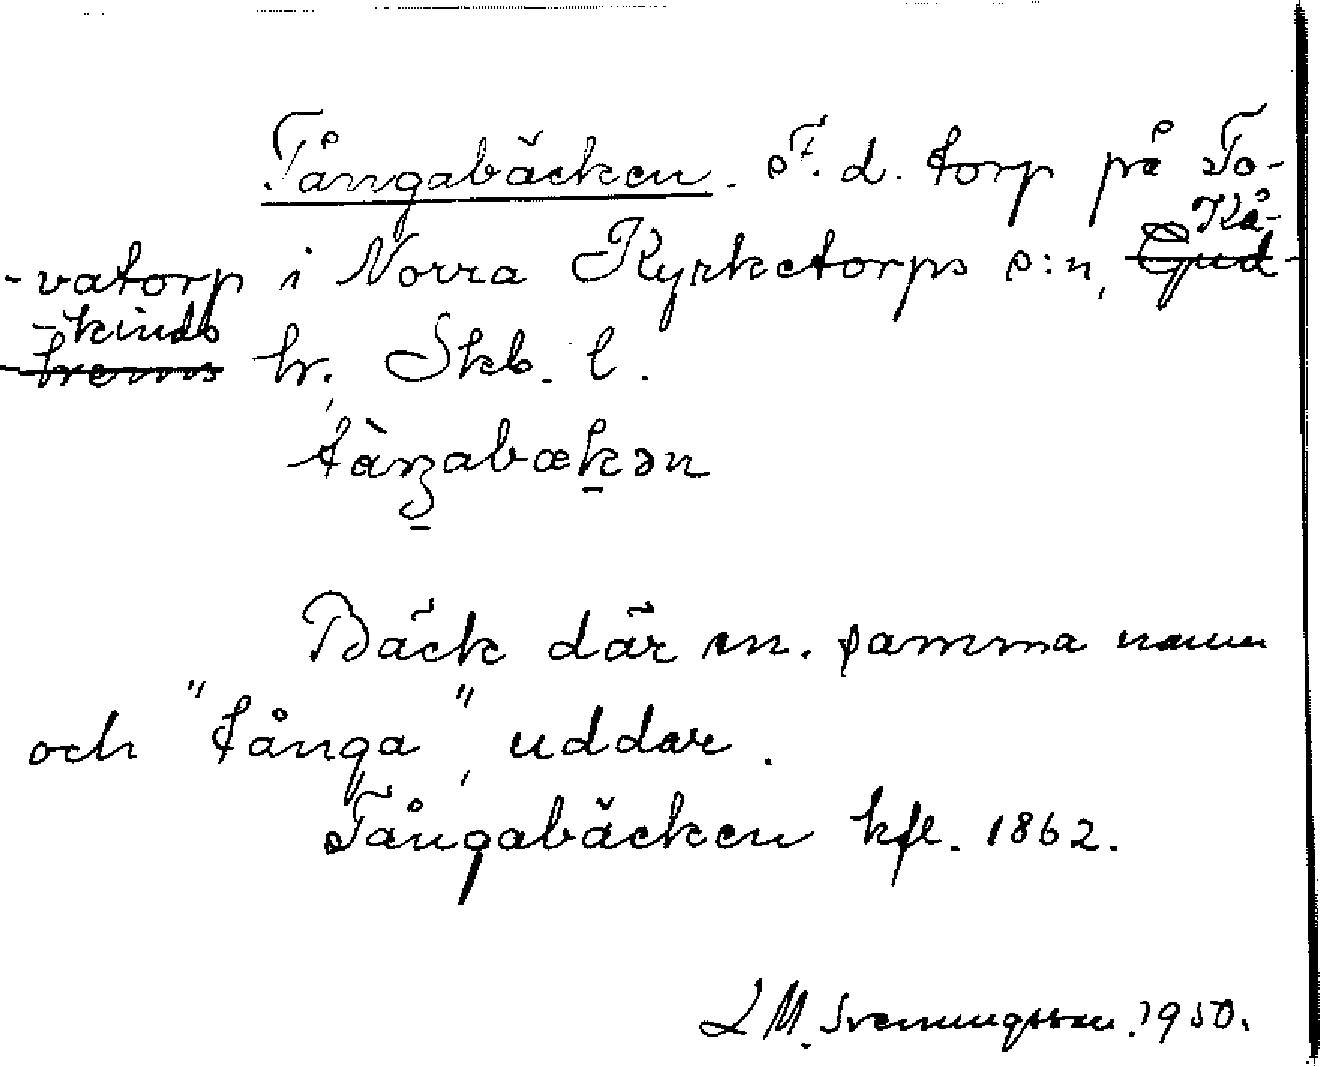 Tångabäcken. F. d. torp på To-
-vatorp i Norra Kyrketorps s:n, Kå-
-kinds hr, Skb. l.
tàŋabækən
Bäck där m. samma namn
och "tånga", uddar.
Tångabäcken kfl. 1862.
L M. Svenungsson. 1950.